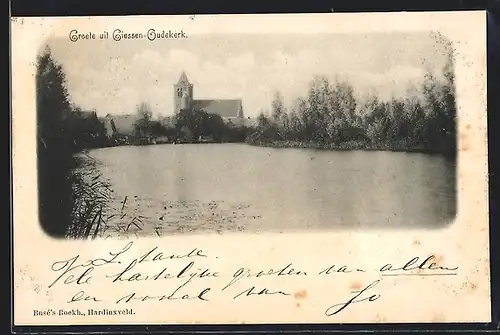 Groete uit Giessen-Oudekerk.
L. tante.
Vele hartelijke groeten van allen
en vooral van Jo
Busé's Boekh., Hardinxveld.